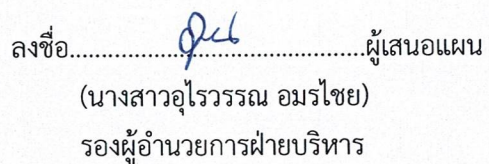 ลงชื่อ.............................................ผู้เสนอแผน
(นางสาวอุไรวรรณ อมรไชย)
รองผู้อำนวยการฝ่ายบริหาร